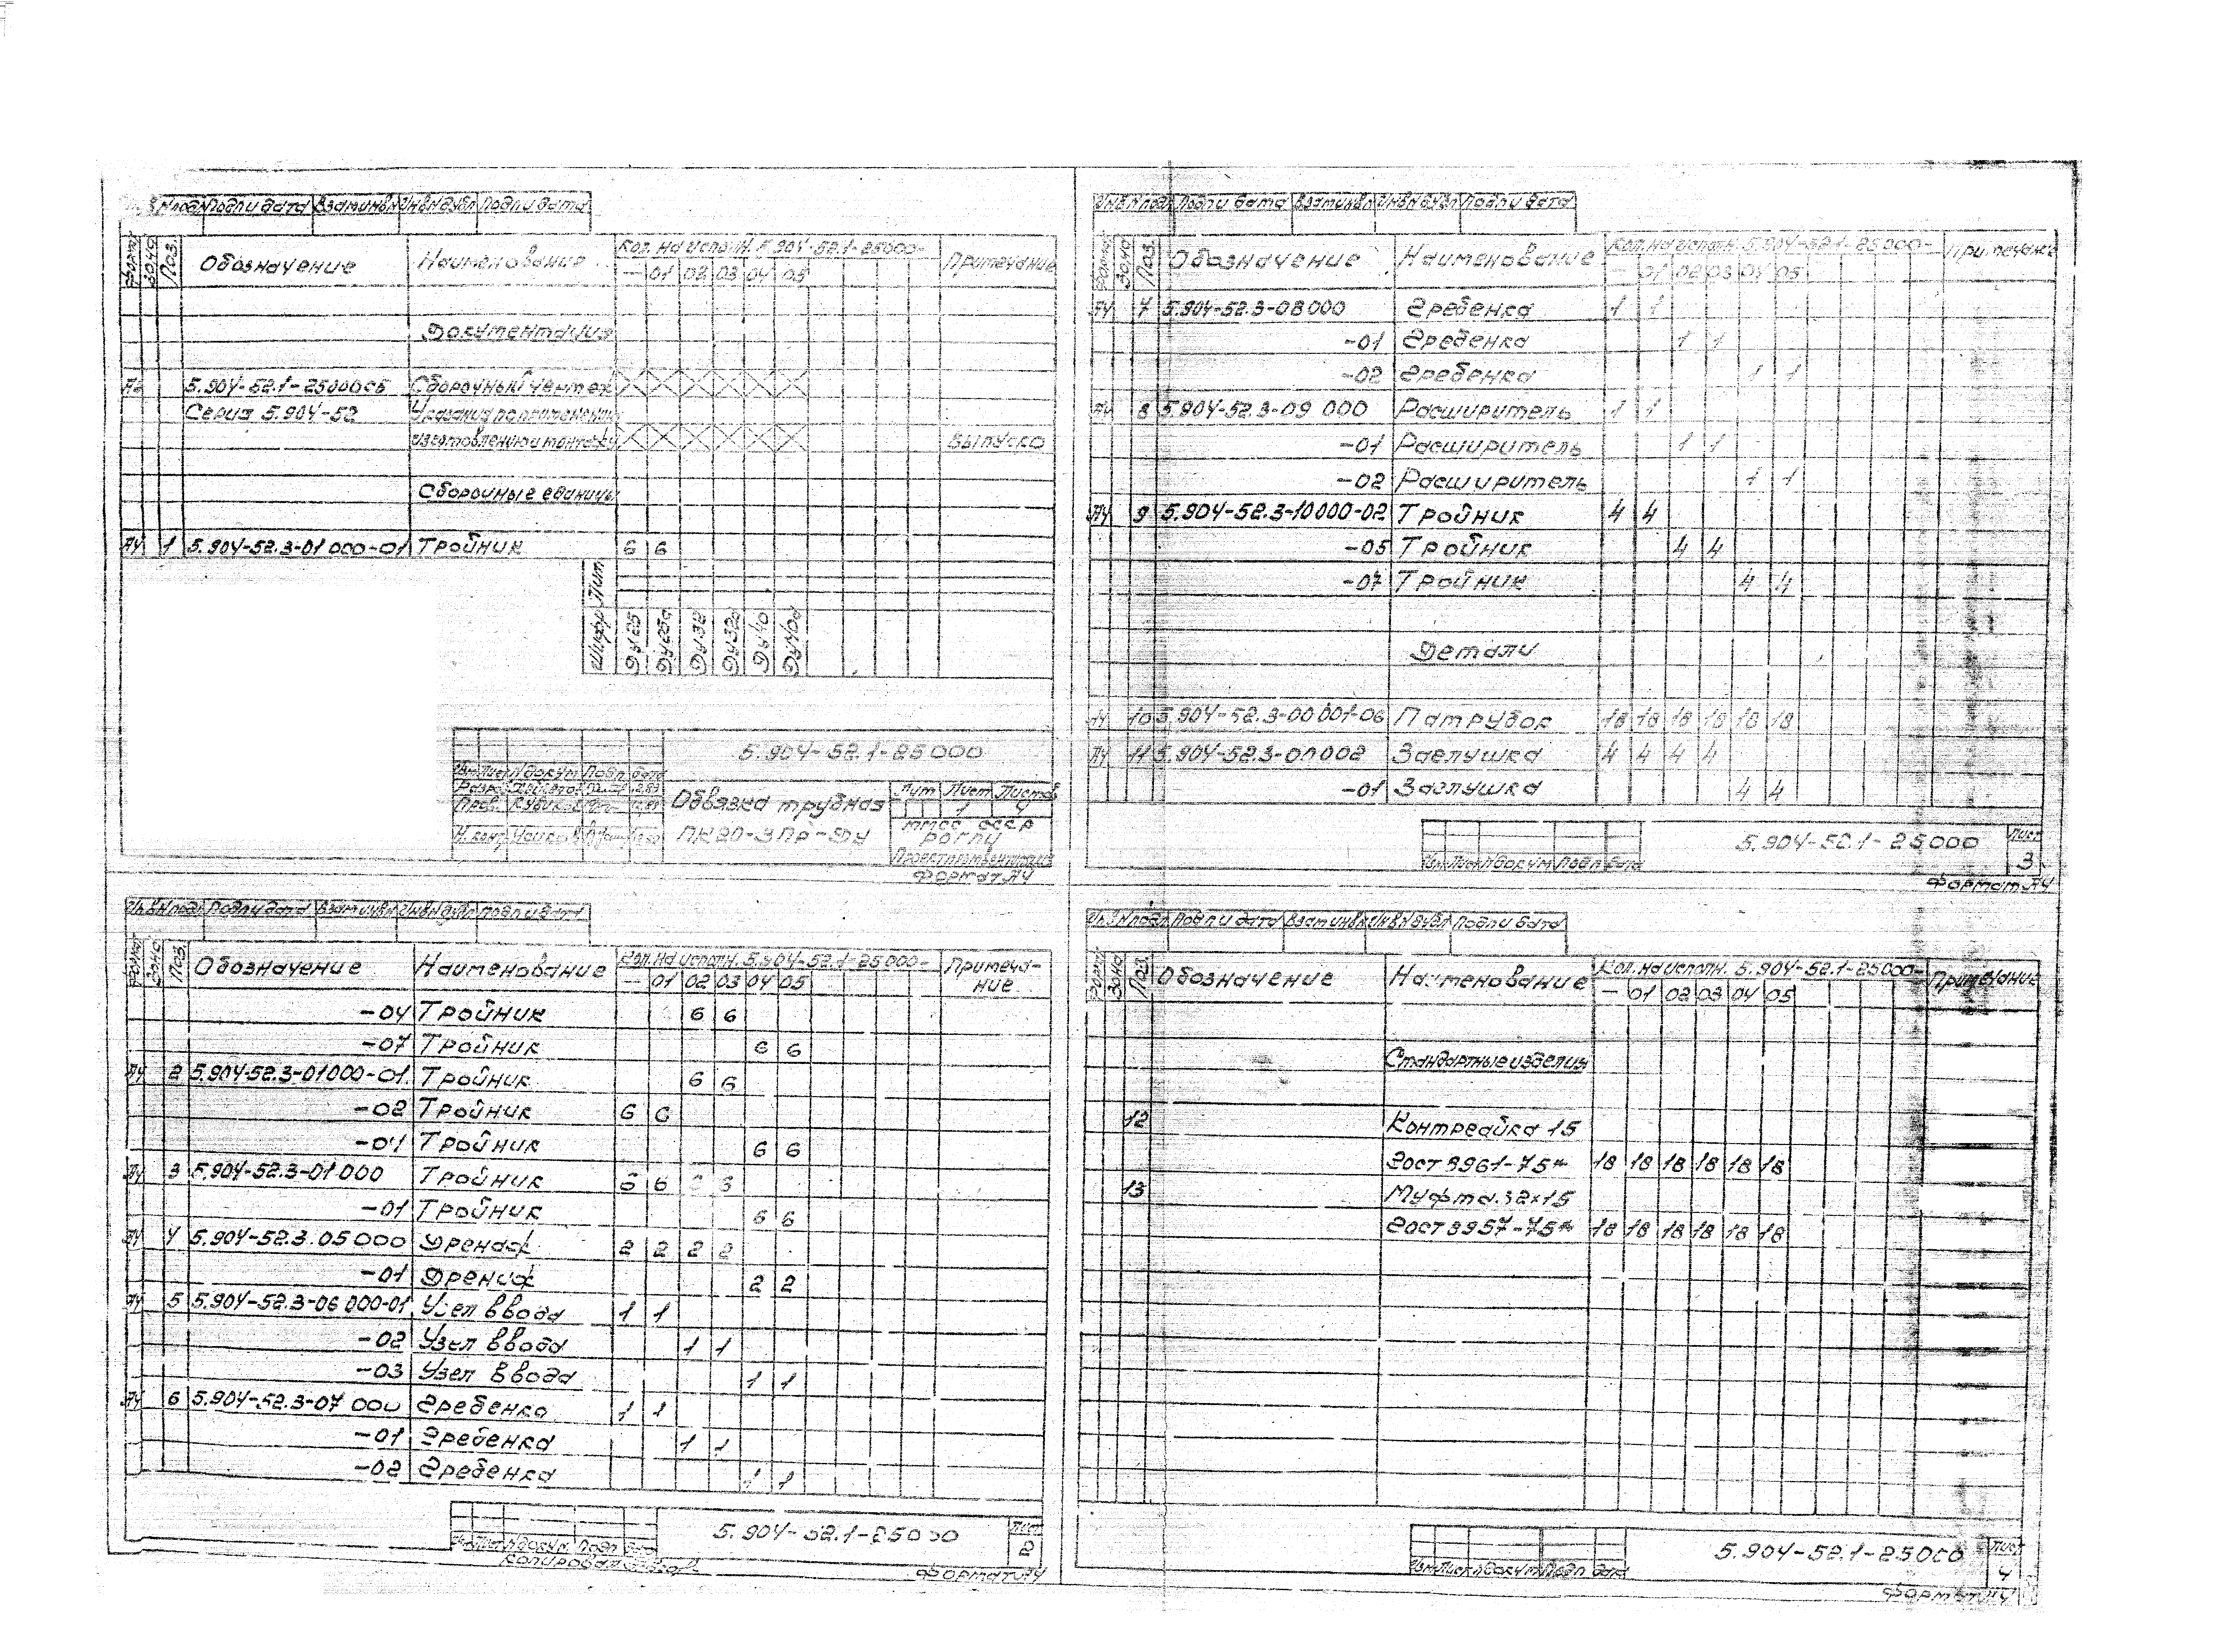 Инв.N подл. Подп и дата Взам инв N Инв N дубл Подп и дата
Формат Зона Поз. Обозначение Наименование Кол. на исполн. 5.904-52.1-25000- Примечание
— 01 02 03 04 05
Документация
5.904-52.1-25000СБ Сборочный чертеж
Серия 5.904-52 Указания по применению
изготовлению и монтажу Выпуск 0
Сборочные единицы
А4 1 5.904-52.3-01000-01 Тройник 6 6
Шифр Лит.
Ду25 Ду25а Ду32 Ду32а Ду40 Ду40а
5.904-52.1-25000
Изм Лист N докум Подп. дата
Разр.
Пров.
Н. конт.
Обвязка трубная
ПК20-3Пр-ДУ
Лит Лист Листов
1 4
ММСС СССР
Формат А4
Инв.N подл. Подп и дата Взам инв N Инв N дубл Подп и дата
Формат Зона Поз. Обозначение Наименование Кол. на исполн. 5.904-52.1-25000- Примеча-
ние
— 01 02 03 04 05
-04 Тройник 6 6
-07 Тройник 6 6
А4 2 5.904-52.3-01000-01 Тройник 6 6
-02 Тройник 6 6
-04 Тройник 6 6
А4 3 5.904-52.3-01000 Тройник 6 6 6 6
-01 Тройник 6 6
А4 4 5.904-52.3.05000 Дренаж 2 2 2 2
-01 Дренаж 2 2
А4 5 5.904-52.3-06000-01 Узел ввода 1 1
-02 Узел ввода 1 1
-03 Узел ввода 1 1
А4 6 5.904-52.3-07000 Гребенка 1 1
-01 Гребенка 1 1
-02 Гребенка 1 1
Изм Лист N докум. Подп дата
5.904-52.1-25000 Лист
2
Копировал
Формат А4
Инв.N подл. Подп и дата Взам инв N Инв N дубл Подп и дата
Формат Зона Поз. Обозначение Наименование Кол. на исполн. 5.904-52.1-25000- Примечание
— 01 02 03 04 05
А4 7 5.904-52.3-08000 Гребенка 1 1
-01 Гребенка 1 1
-02 Гребенка 1 1
А4 8 5.904-52.3-09000 Расширитель 1 1
-01 Расширитель 1 1
-02 Расширитель 1 1
А4 9 5.904-52.3-10000-02 Тройник 4 4
-05 Тройник 4 4
-07 Тройник 4 4
Детали
А4 10 5.904-52.3-00001-06 Патрубок 18 18 18 18 18 18
А4 11 5.904-52.3-00002 Заглушка 4 4 4 4
-01 Заглушка 4 4
Изм Лист N докум Подп дата
5.904-52.1-25000 Лист
3
Формат А4
Инв.N подл. Подп и дата Взам инв N Инв N дубл Подп и дата
Формат Зона Поз. Обозначение Наименование Кол. на исполн. 5.904-52.1-25000- Примечание
— 01 02 03 04 05
Стандартные изделия
12 Контргайка 15
Гост 8961-75* 18 18 18 18 18 18
13 Муфта 32х15
Гост 8957-75* 18 18 18 18 18 18
Изм Лист N докум Подп дата
5.904-52.1-25000 Лист
4
Формат А4